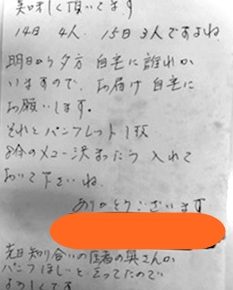 美味しく頂いてます
14日 4人、15日3人ですよね
明日から夕方 自宅に誰れか
いますので、お届け自宅に
お願いします。
それとパンフレット1枚
8今のメニュー決まったら 入れて
おいて下さいね
ありがとうございます
先日知り合いの 奥さんが
パンフほしいと 言ってたので
よろしくです